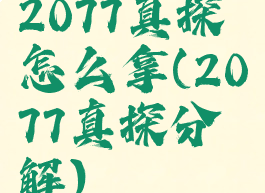 2077真探
怎么拿(20
77真探分
解)